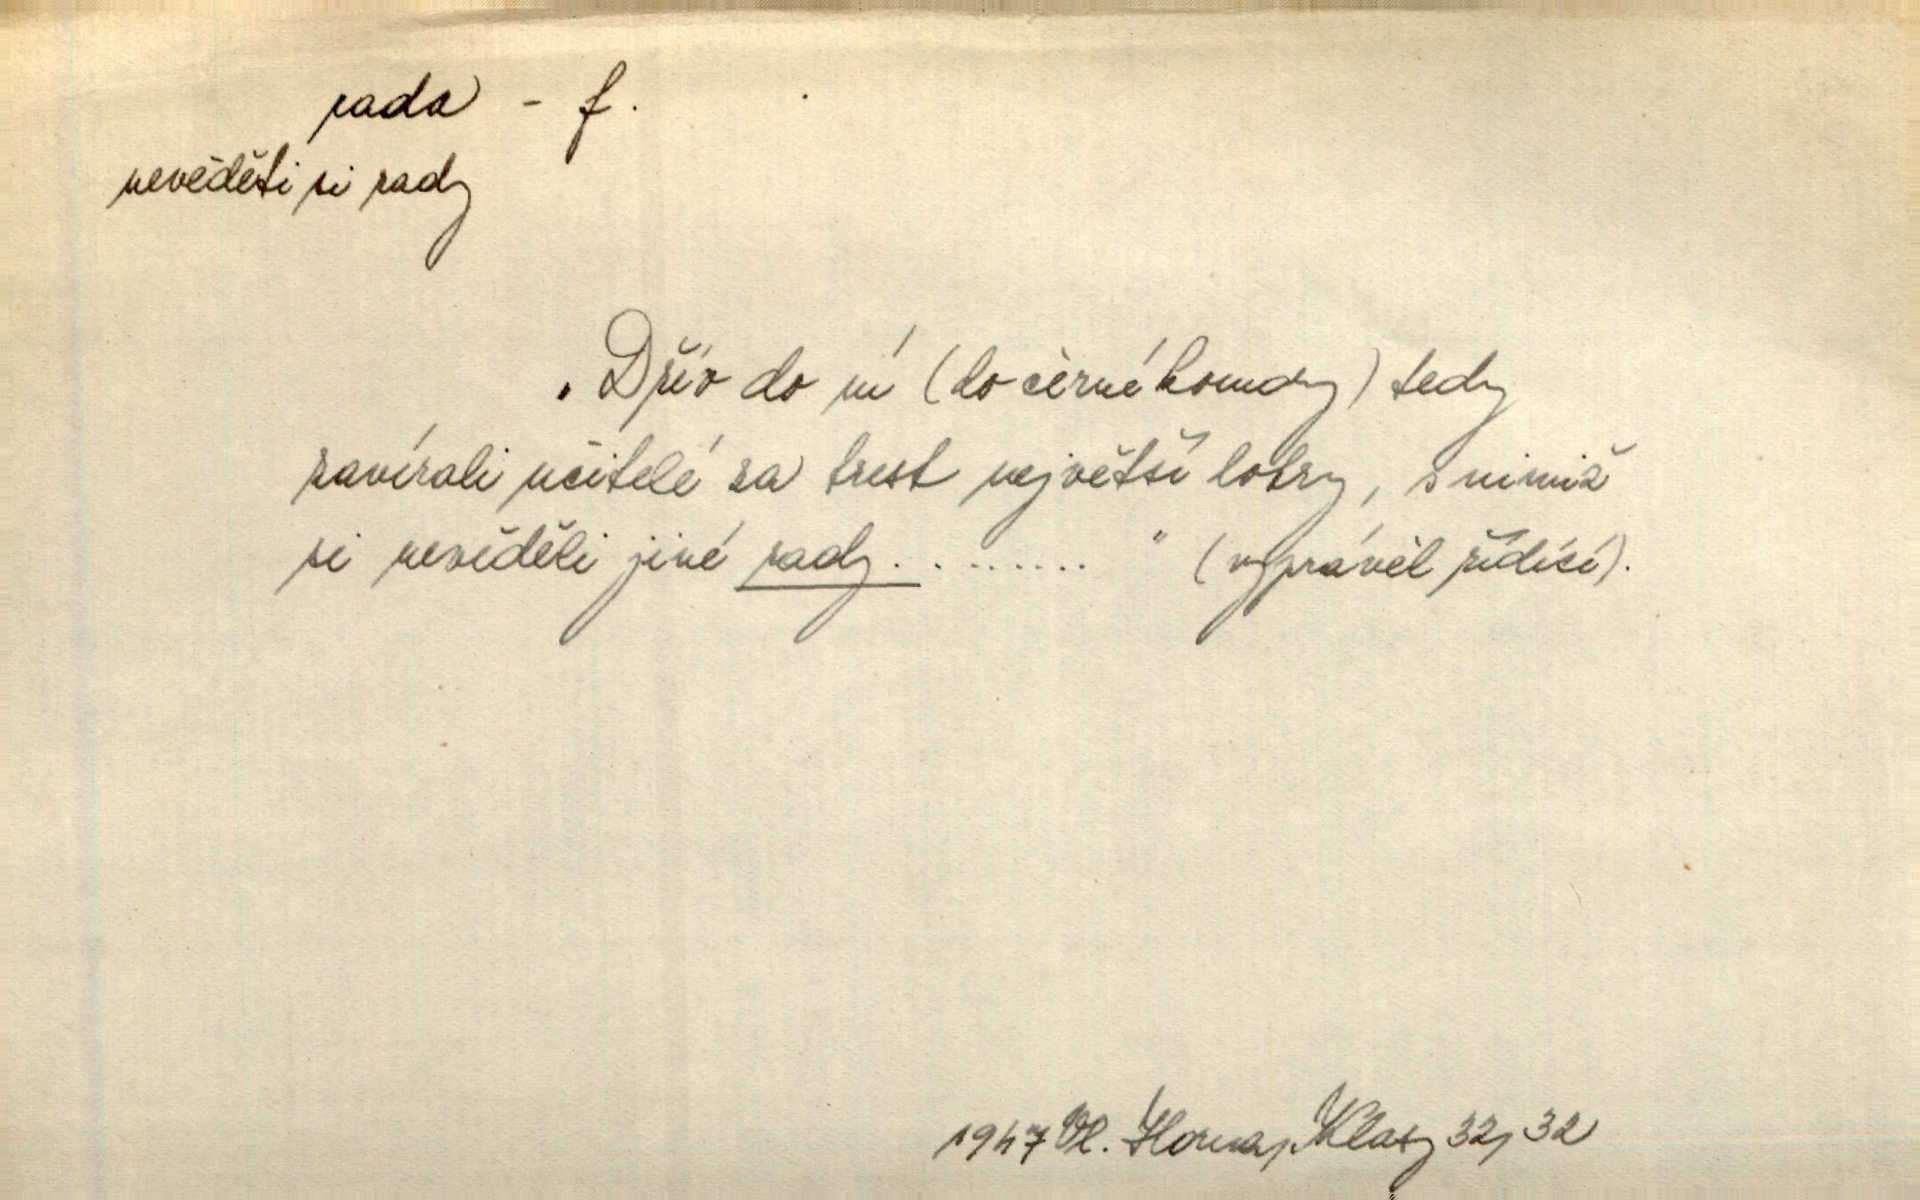 rada - f.
nevěděti si rady
„Dřív do ní (do černé komory) tedy
zavírali učitelé za trest největší lotry, s nimiž
si nevěděli jiné rady. . ....... " (vyprávěl řídící).
1947 Vl. Horna, Klasy 32, 32